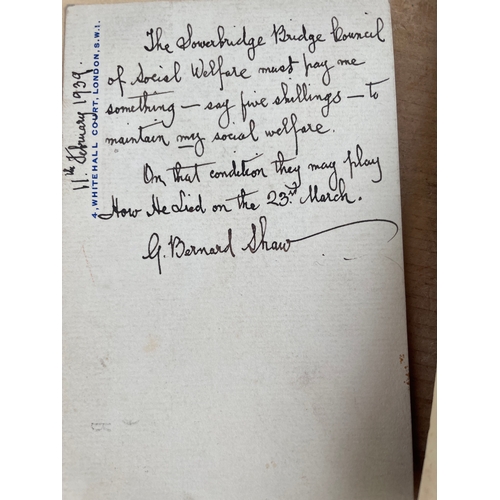 4, WHITEHALL COURT, LONDON, S.W.1.
11th February 1939.
The Sowerbridge Bridge Council
of Social Welfare must pay me
something — say five shillings — to
maintain my social welfare.
On that condition they may play
How He Lied on the 23rd March.
G. Bernard Shaw